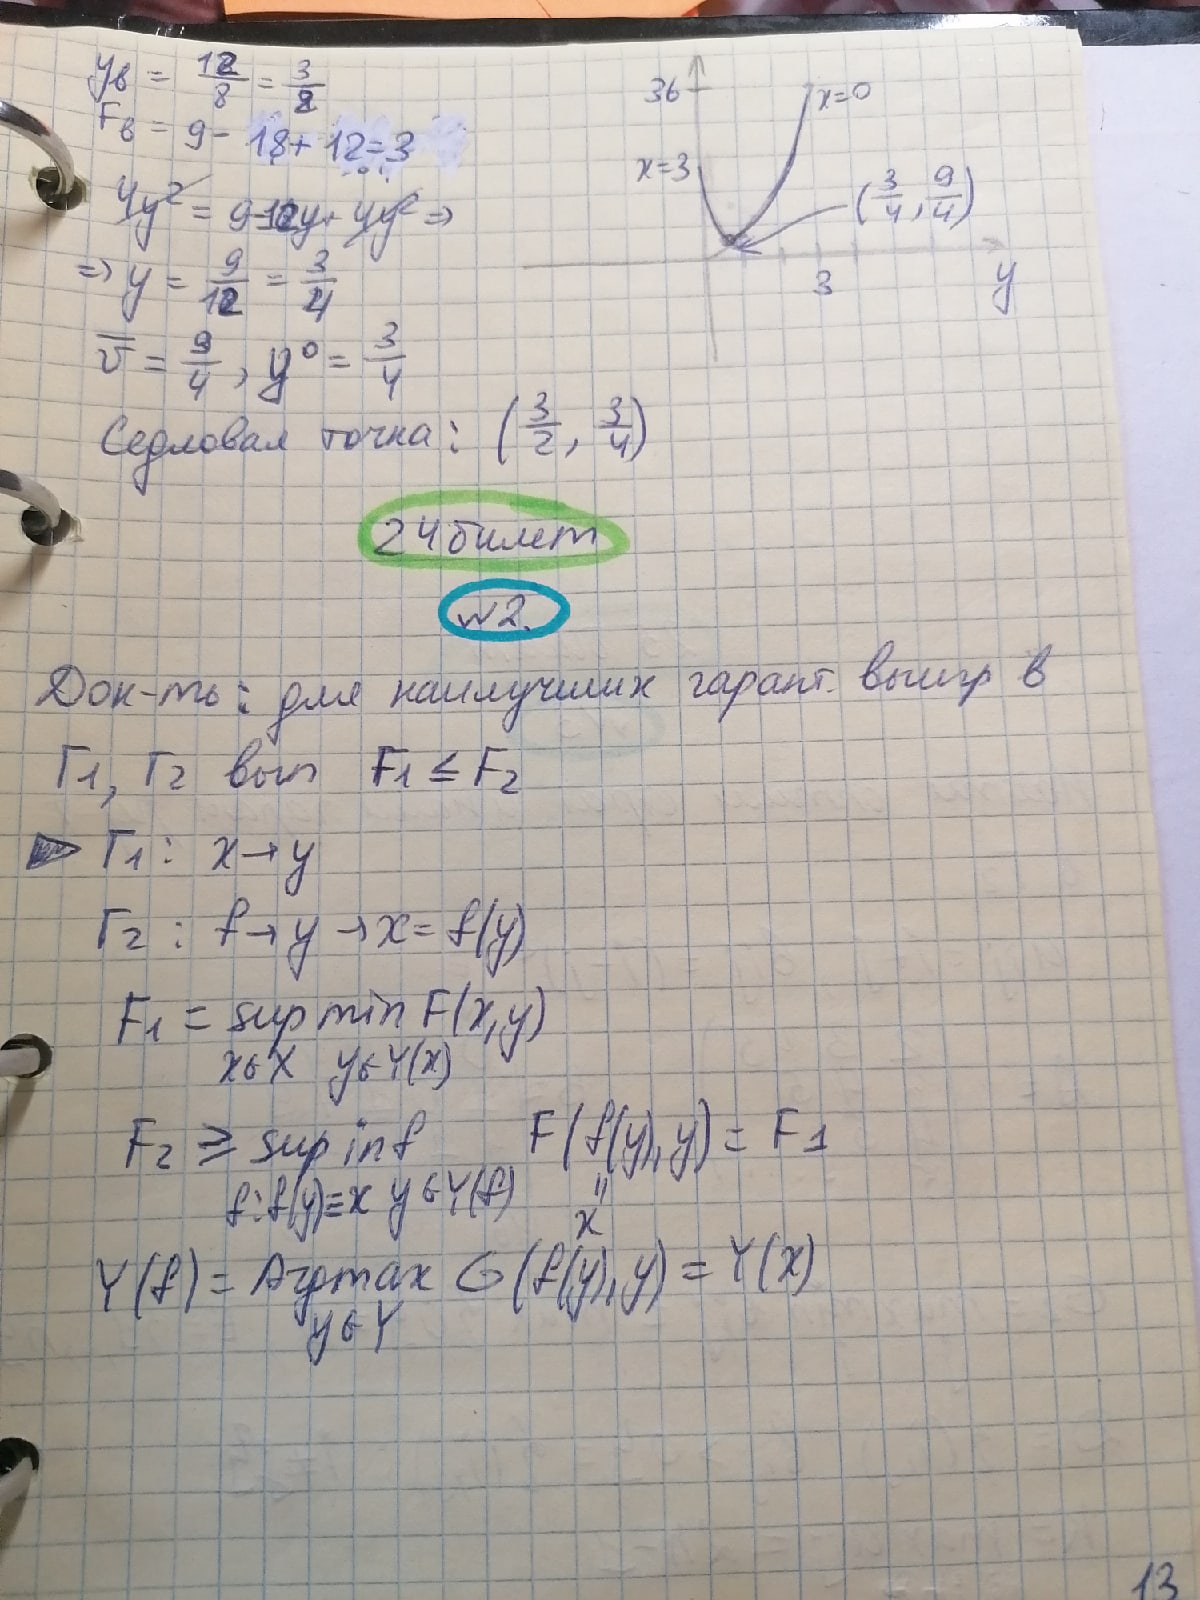 y_в = 12/8 = 3/2
F_в = 9 - 18 + 12 = 3
4y² = 9 - 12y + 4y² ⇒
⇒ y = 9/12 = 3/4
v̄ = 9/4, y⁰ = 3/4
36
x=0
x=3
(3/4, 9/4)
3
y
Седловая точка: (3/2, 3/4)
24 билет
№2.
Док-ть: для наилучших гарант. выигр в
Г₁, Г₂ вып F₁ ≤ F₂
Г₁: x → y
Г₂: f → y → x = f(y)
F₁ = sup min F(x,y)
x∈X y∈Y(x)
F₂ ≥ sup inf F(f(y),y) = F₁
f: f(y)≡x y∈Y(f) " x
Y(f) = Argmax G(f(y),y) = Y(x)
y∈Y
13